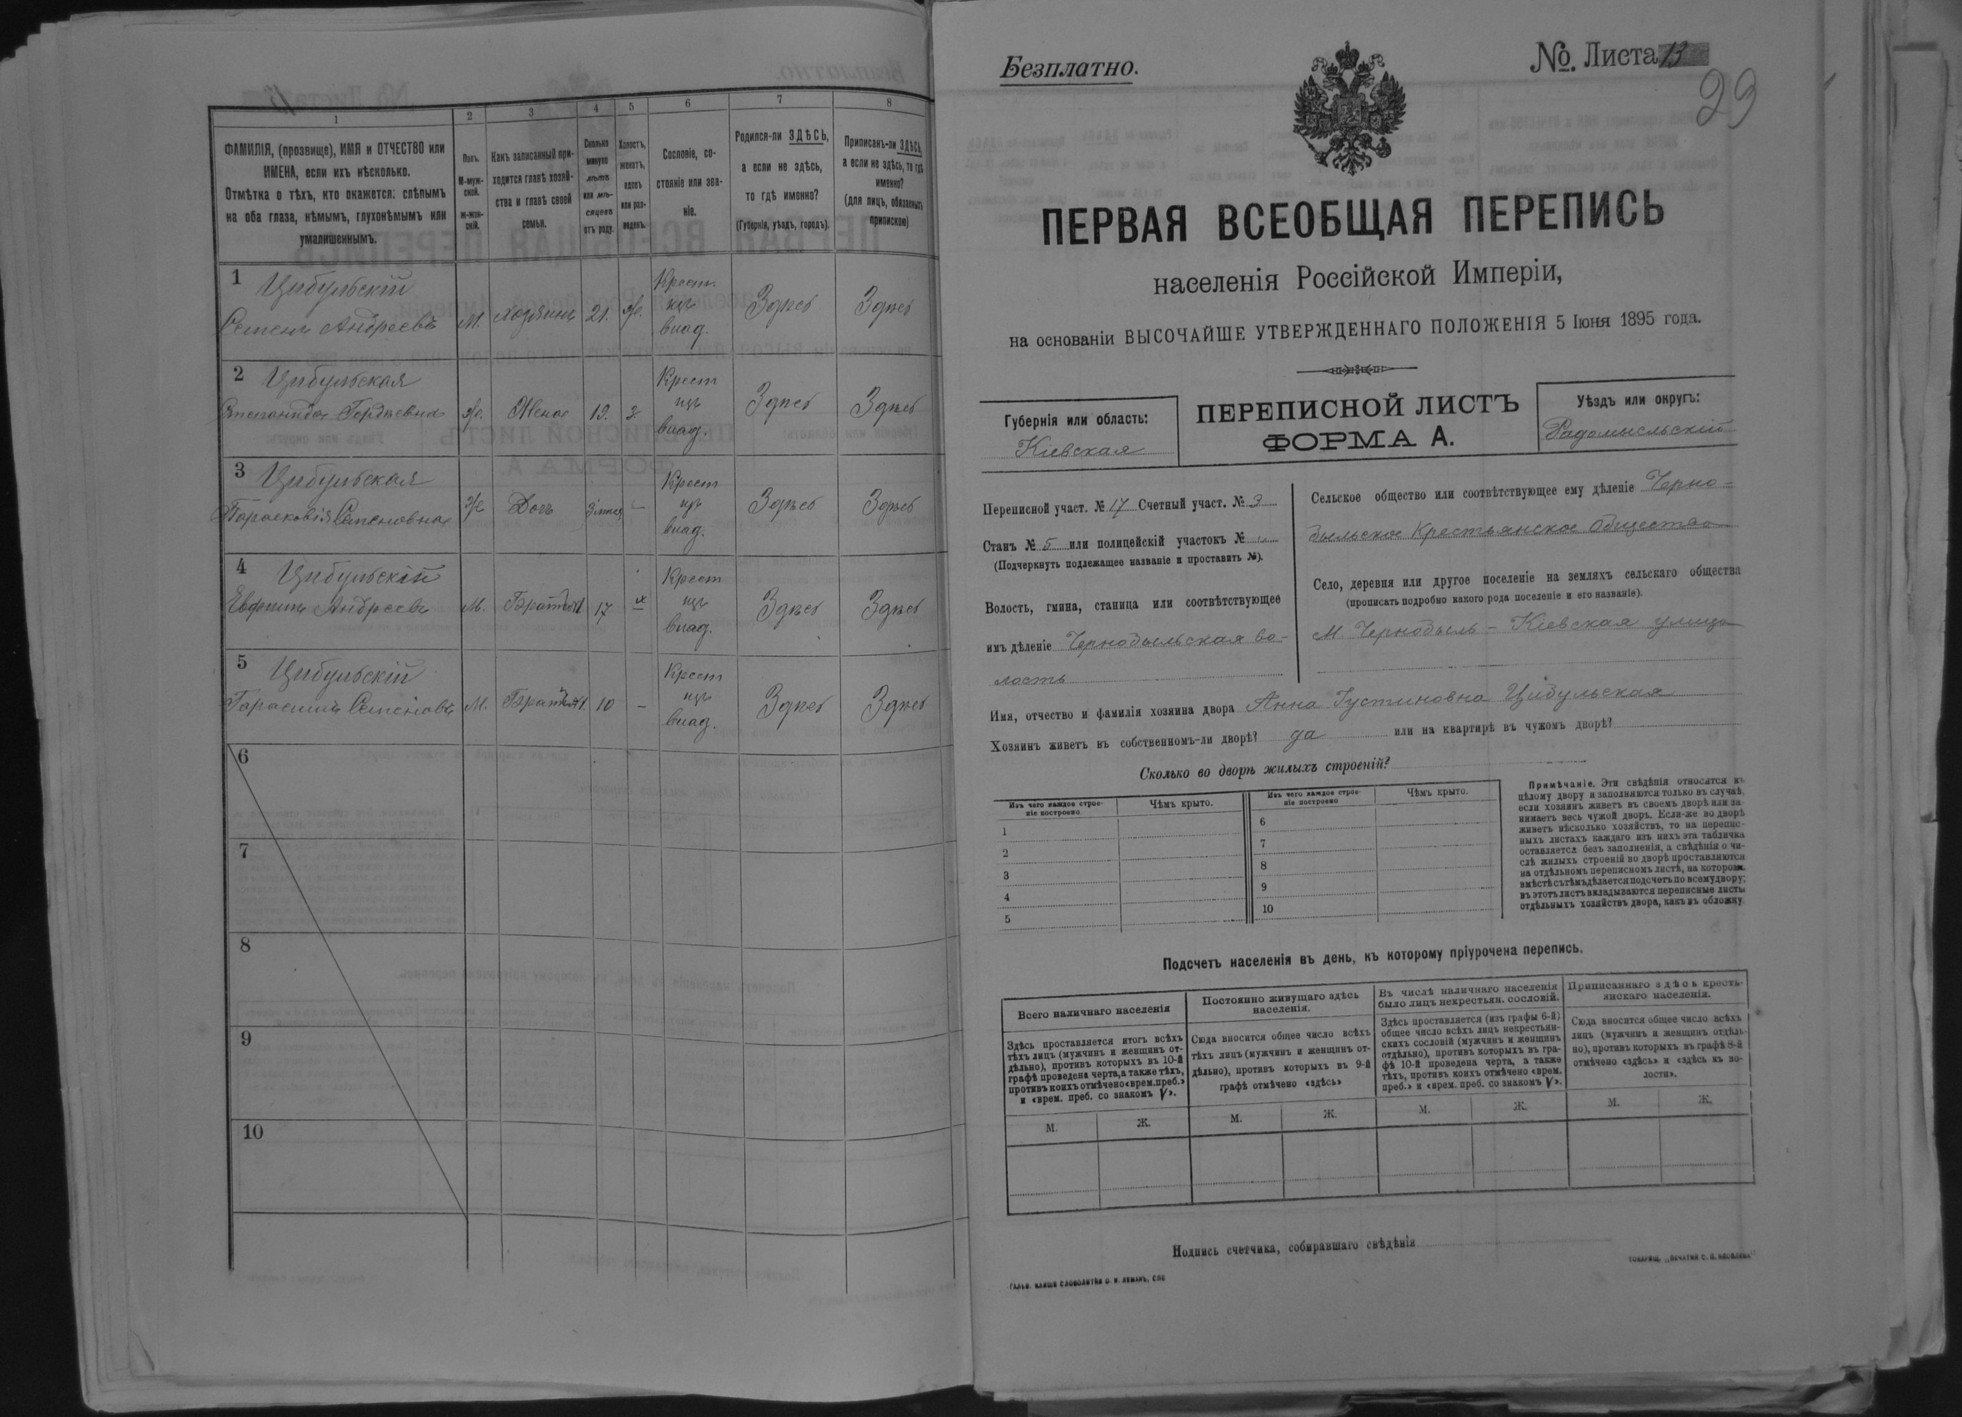 1
2
3
4
5
6
7
8
ФАМИЛІЯ, (прозвище), ИМЯ и ОТЧЕСТВО или
ИМЕНА, если ихъ нѣсколько.
Отмѣтка о тѣхъ, кто окажется: слѣпымъ
на оба глаза, нѣмымъ, глухонѣмымъ или
умалишеннымъ.
Полъ.
М-муж-
ской.
ж-жен-
скій.
Какъ записанный при-
ходится главѣ хозяй-
ства и главѣ своей
семьи.
Сколько
минуло
лѣтъ
или мѣ-
сяцевъ
отъ роду.
Холостъ,
женатъ,
вдовъ
или раз-
веденъ.
Сословіе, со-
стояніе или зва-
ніе.
Родился-ли ЗДѢСЬ,
а если не здѣсь,
то гдѣ именно?
(Губернія, уѣздъ, городъ).
Приписанъ-ли ЗДѢСЬ,
а если не здѣсь, то гдѣ
именно?
(для лицъ, обязанныхъ
припискою)
1 Цибульскій
Семенъ Андреевъ М. хозяинъ 21. ж. Крест. изъ влад. Здѣсь Здѣсь
2 Цибульская
Степанида Гордѣевна ж. Жена 19. з. Крест изъ влад. Здѣсь Здѣсь
3 Цибульская
Парасковія Семеновна ж Дочь 3 мѣс – Крест изъ влад. Здѣсь Здѣсь
4 Цибульскій
Андреевъ М. Братъ 17 х Крест изъ влад. Здѣсь Здѣсь
5 Цибульскій
Герасимъ Семеновъ М. Братъ 10 – Крест изъ влад. Здѣсь Здѣсь
6
7
8
9
10
Безплатно.
№. Листа 13
29
ПЕРВАЯ ВСЕОБЩАЯ ПЕРЕПИСЬ
населенія Россійской Имперіи,
на основаніи ВЫСОЧАЙШЕ УТВЕРЖДЕННАГО ПОЛОЖЕНІЯ 5 Іюня 1895 года.
Губернія или область:
Кіевская
ПЕРЕПИСНОЙ ЛИСТЪ
ФОРМА А.
Уѣздъ или округъ:
Радомысльскій
Переписной участ. № 17 Счетный участ. № 3
Станъ № 5 или полицейскій участокъ №
(Подчеркнуть подлежащее названіе и проставить №).
Волость, гмина, станица или соотвѣтствующее
имъ дѣленіе Чернобыльская во-
лость
Сельское общество или соотвѣтствующее ему дѣленіе Черно=
быльское Крестьянское Общество
Село, деревня или другое поселеніе на земляхъ сельскаго общества
(прописать подробно какого рода поселеніе и его названіе).
М. Чернобыль – Кіевская улица
Имя, отчество и фамилія хозяина двора Анна Густиновна Цибульская
Хозяинъ живетъ въ собственномъ-ли дворѣ? да или на квартирѣ въ чужомъ дворѣ?
Сколько во дворѣ жилыхъ строеній?
Изъ чего каждое строе-
ніе построено
Чѣмъ крыто.
Изъ чего каждое строе-
ніе построено
Чѣмъ крыто.
1
2
3
4
5
6
7
8
9
10
Примѣчаніе. Эти свѣдѣнія относятся къ
цѣлому двору и заполняются только въ случаѣ,
если хозяинъ живетъ въ своемъ дворѣ или за-
нимаетъ весь чужой дворъ. Если-же во дворѣ
живетъ нѣсколько хозяйствъ, то на перепис-
ныхъ листахъ каждаго изъ нихъ эта табличка
оставляется безъ заполненія, а свѣдѣнія о чи-
слѣ жилыхъ строеній во дворѣ проставляются
на отдѣльномъ переписномъ листѣ, на которомъ
вмѣстѣ съ тѣмъ дѣлается подсчетъ по всему двору;
въ этотъ листъ вкладываются переписные листы
отдѣльныхъ хозяйствъ двора, какъ въ обложку.
Подсчетъ населенія въ день, къ которому пріурочена перепись.
Всего наличнаго населенія
Здѣсь проставляется итогъ всѣхъ
тѣхъ лицъ (мужчинъ и женщинъ от-
дѣльно), противъ которыхъ въ 10-й
графѣ проведена черта, а также тѣхъ,
противъ коихъ отмѣчено «врем. преб.»
и «врем. преб. со знакомъ V».
Постоянно живущаго здѣсь
населенія.
Сюда вносится общее число всѣхъ
тѣхъ лицъ (мужчинъ и женщинъ от-
дѣльно), противъ которыхъ въ 9-й
графѣ отмѣчено «здѣсь»
Въ числѣ наличнаго населенія
было лицъ некрестьян. сословій.
Здѣсь проставляется (изъ графы 6-й)
общее число всѣхъ лицъ некрестьян-
скихъ сословій (мужчинъ и женщинъ
отдѣльно), противъ которыхъ въ гра-
фѣ 10-й проведена черта, а также
тѣхъ, противъ коихъ отмѣчено «врем.
преб.» и «врем. преб. со знакомъ V».
Приписаннаго здѣсь кресть-
янскаго населенія.
Сюда вносится общее число всѣхъ
лицъ (мужчинъ и женщинъ отдѣль-
но), противъ которыхъ въ графѣ 8-й
отмѣчено «здѣсь» и «здѣсь въ во-
лости».
М. Ж. М. Ж. М. Ж. М. Ж.
Подпись счетчика, собиравшаго свѣдѣнія